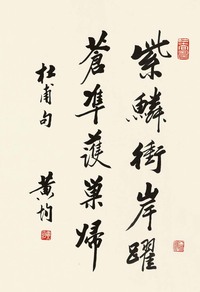 紫鱗衝岸躍
蒼隼護巢歸
杜甫句
黃均